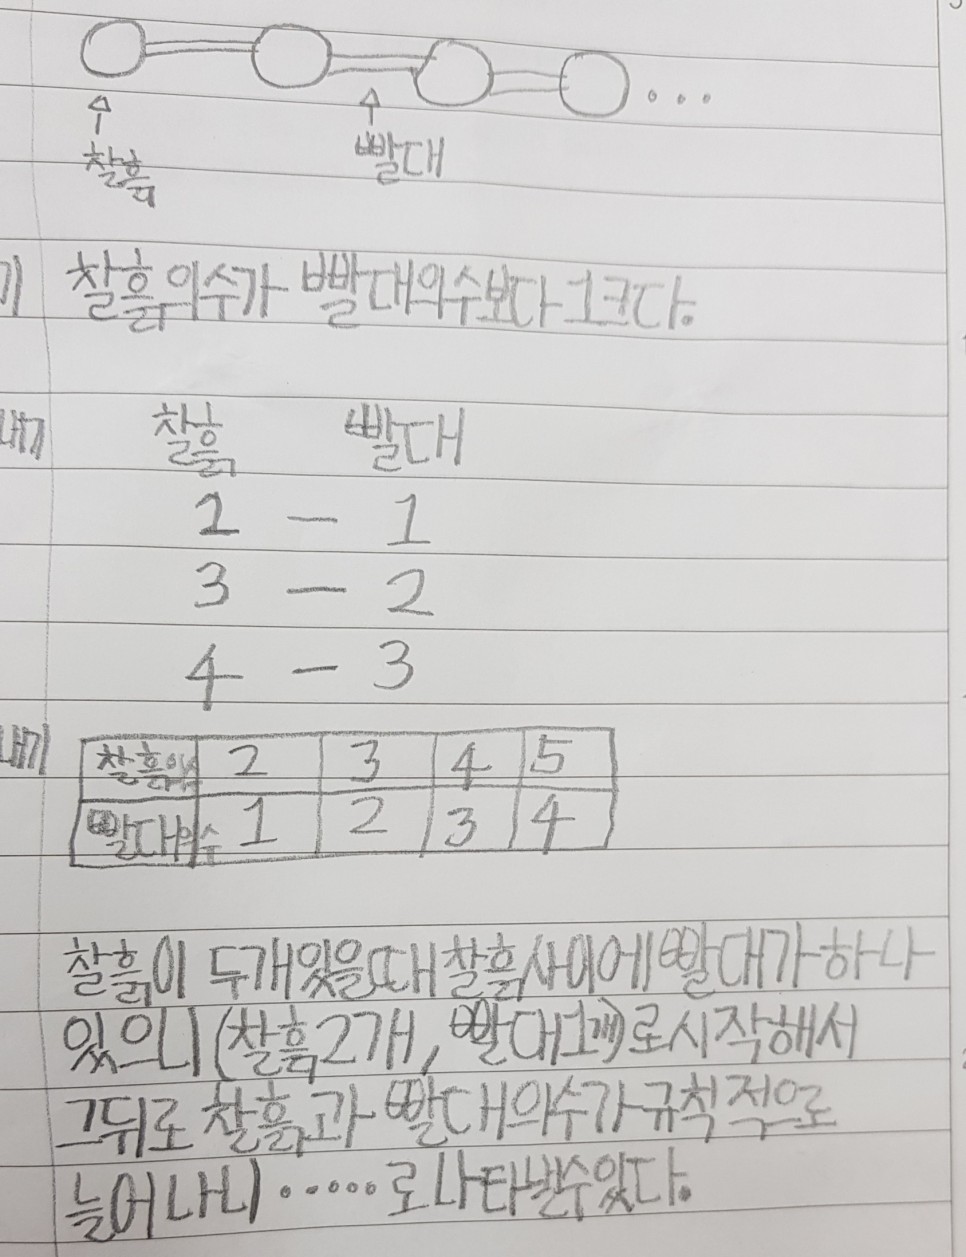 찰흙 빨대
기 찰흙의수가 빨대의수보다 1크다.
내기 찰흙 빨대
2 - 1
3 - 2
4 - 3
내기 찰흙의수 2 3 4 5
빨대의수 1 2 3 4
찰흙이 두개있을때 찰흙사이에 빨대가 하나
있으니 (찰흙2개, 빨대1개)로시작해서
그뒤로 찰흙과 빨대의수가 규칙적으로
늘어나니 ····· 로 나타낼수있다.